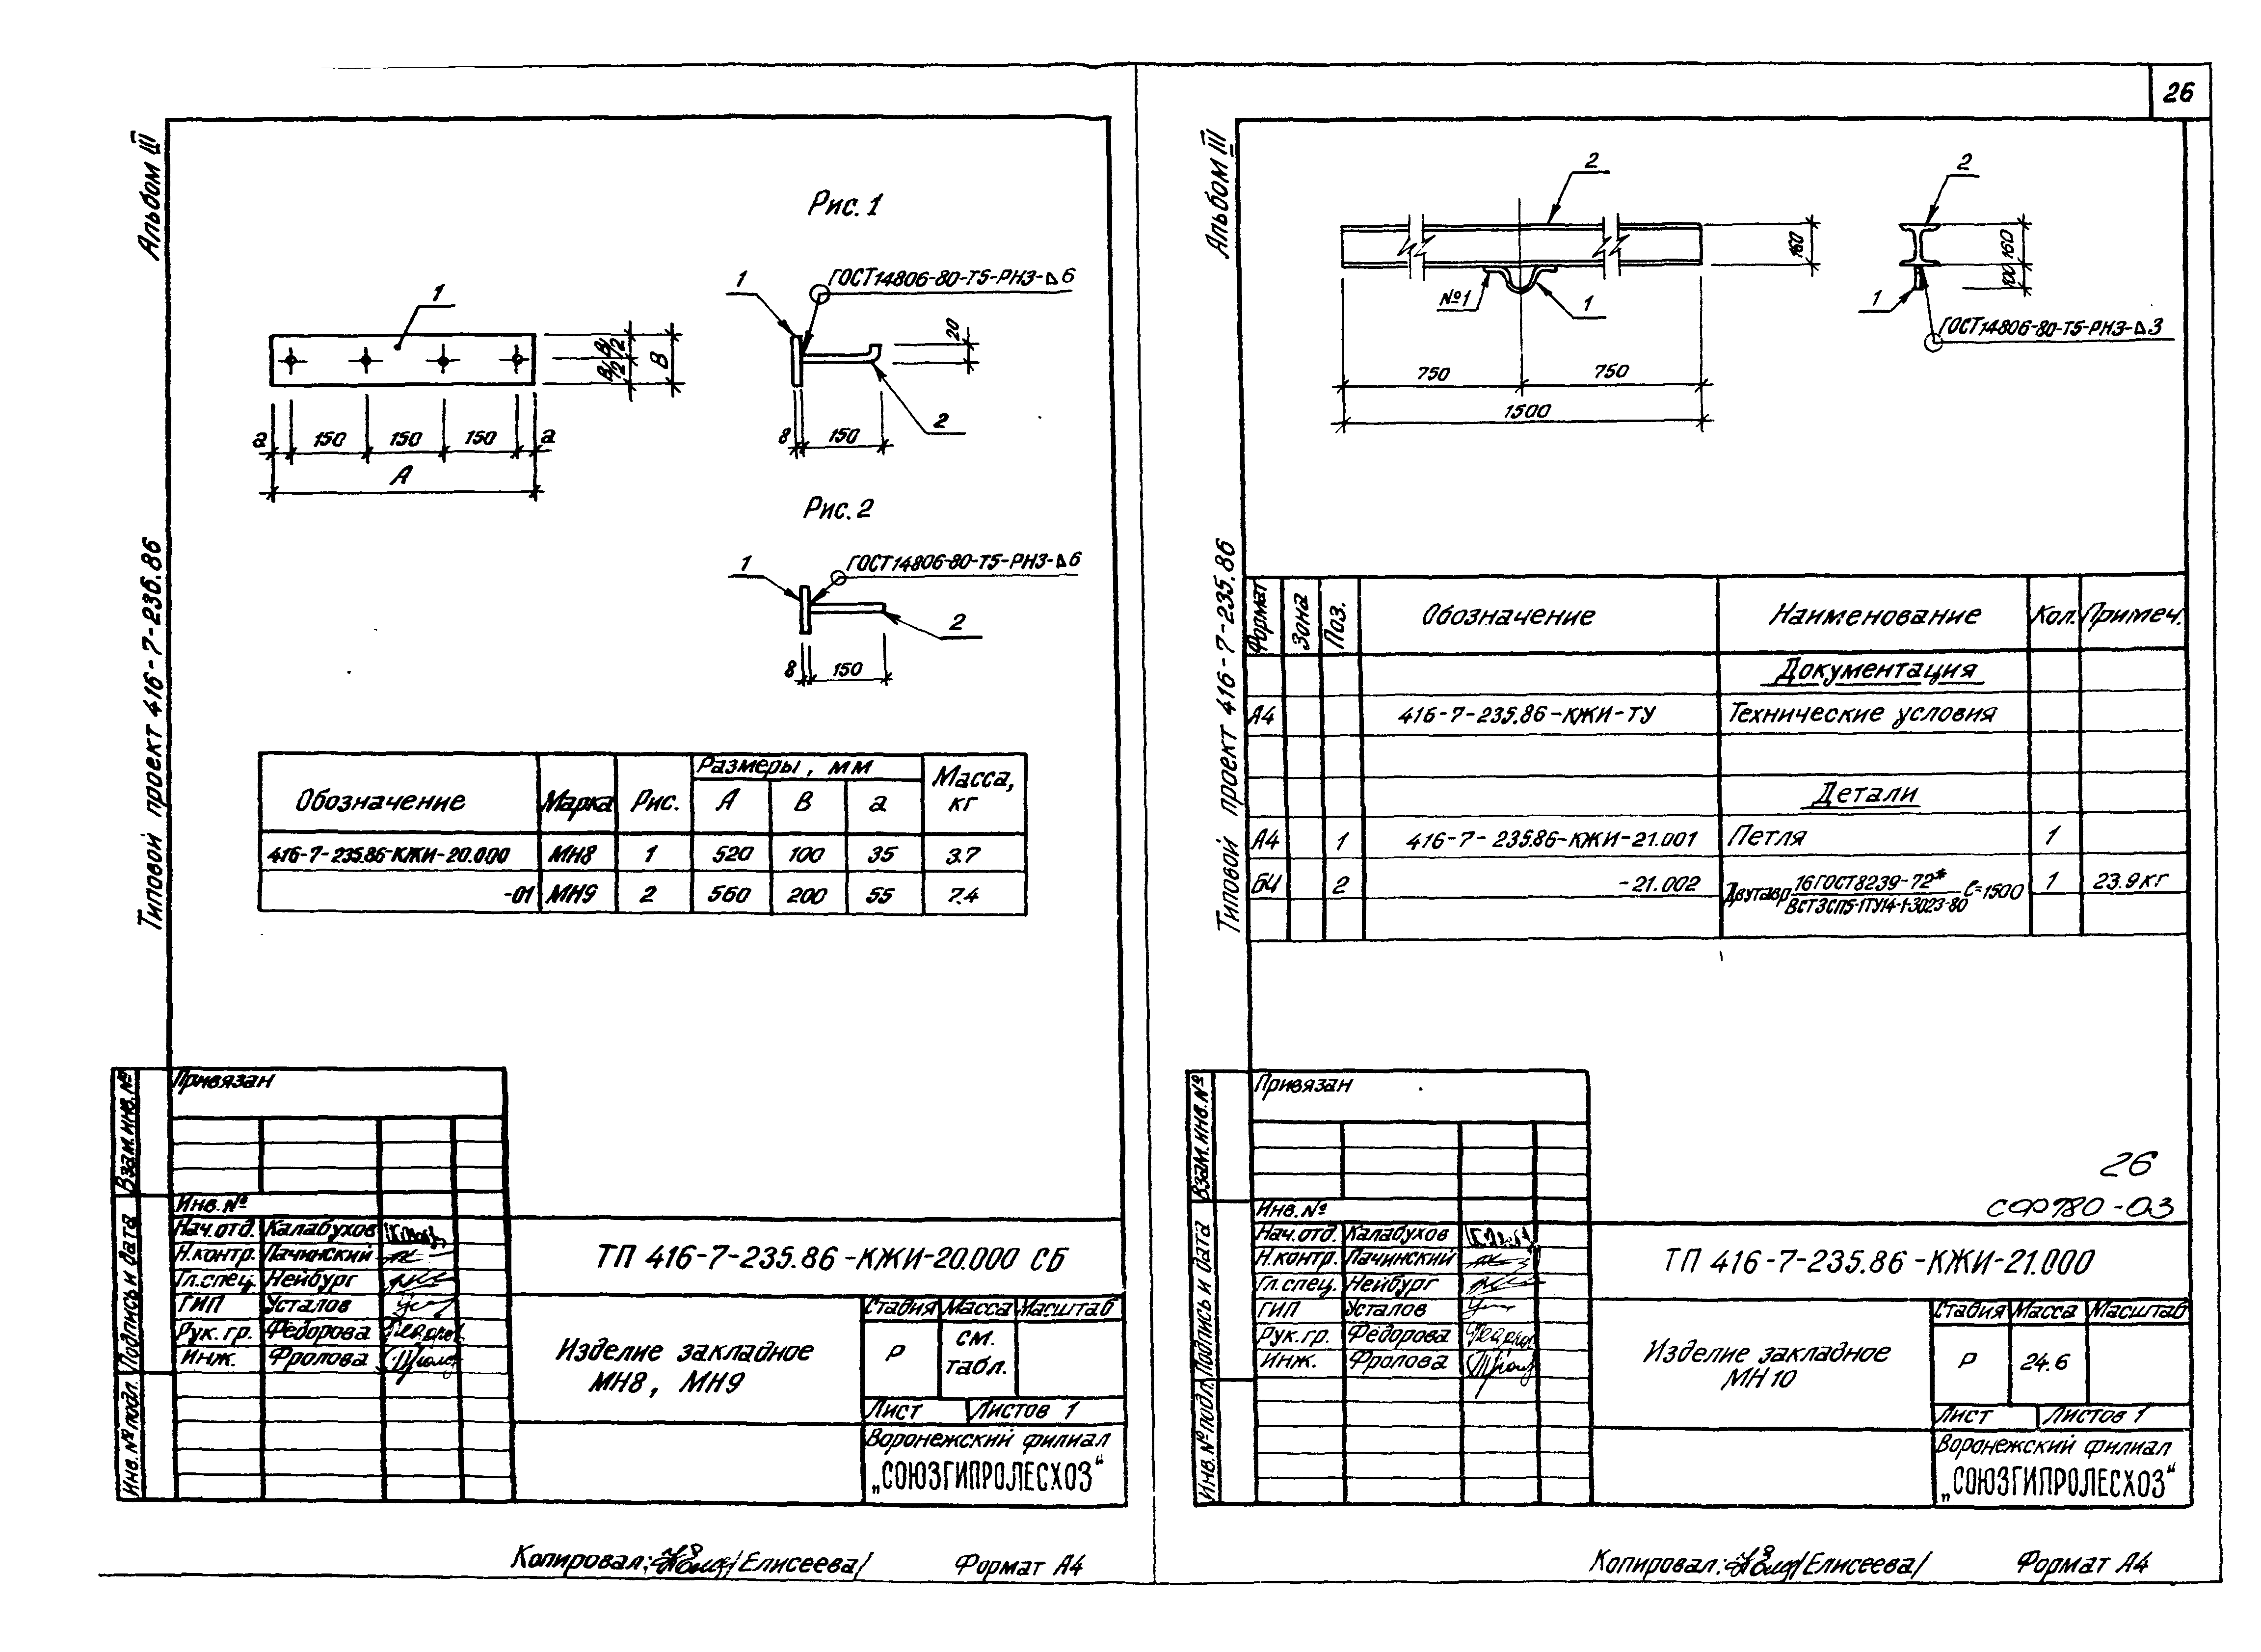 26
Альбом III
Типовой проект 416-7-236.86
Рис. 1
1
ГОСТ14806-80-Т5-РН3-Δ6
1
20
В/2 В/2
В
2
а 150 150 150 а
8 150
А
Рис. 2
1
ГОСТ14806-80-Т5-РН3-Δ6
2
8 150
Обозначение Марка Рис. Размеры, мм Масса, кг
А В а
416-7-235.86-КЖИ-20.000 МН8 1 520 100 35 3.7
-01 МН9 2 560 200 55 7.4
Взам.инв.№
Подпись и дата
Инв.№подл.
Привязан
Инв.№
Нач.отд. Калабухов
Н.контр. Лачинский
Гл.спец. Нейбург
ГИП Усталов
Рук.гр. Федорова
Инж. Фролова
ТП 416-7-235.86-КЖИ-20.000 СБ
Изделие закладное
МН8, МН9
Стадия Масса Масштаб
Р см. табл.
Лист Листов 1
Воронежский филиал
„СОЮЗГИПРОЛЕСХОЗ“
Копировал: /Елисеева/ Формат А4
Альбом III
Типовой проект 416-7-235.86
2
2
160
100 160
№1
1
1
ГОСТ14806-80-Т5-РН3-Δ3
750 750
1500
Формат Зона Поз. Обозначение Наименование Кол. Примеч.
Документация
А4 416-7-235.86-КЖИ-ТУ Технические условия
Детали
А4 1 416-7-235.86-КЖИ-21.001 Петля 1
БЧ 2 -21.002 Двутавр 16ГОСТ8239-72* ℓ=1500 1 23.9кг
ВСТ3СП5-1ТУ14-1-3023-80
26
СФ780-03
Взам.инв.№
Подпись и дата
Инв.№подл.
Привязан
Инв.№
Нач.отд. Калабухов
Н.контр. Лачинский
Гл.спец. Нейбург
ГИП Усталов
Рук.гр. Федорова
Инж. Фролова
ТП 416-7-235.86-КЖИ-21.000
Изделие закладное
МН10
Стадия Масса Масштаб
Р 24.6
Лист Листов 1
Воронежский филиал
„СОЮЗГИПРОЛЕСХОЗ“
Копировал: /Елисеева/ Формат А4